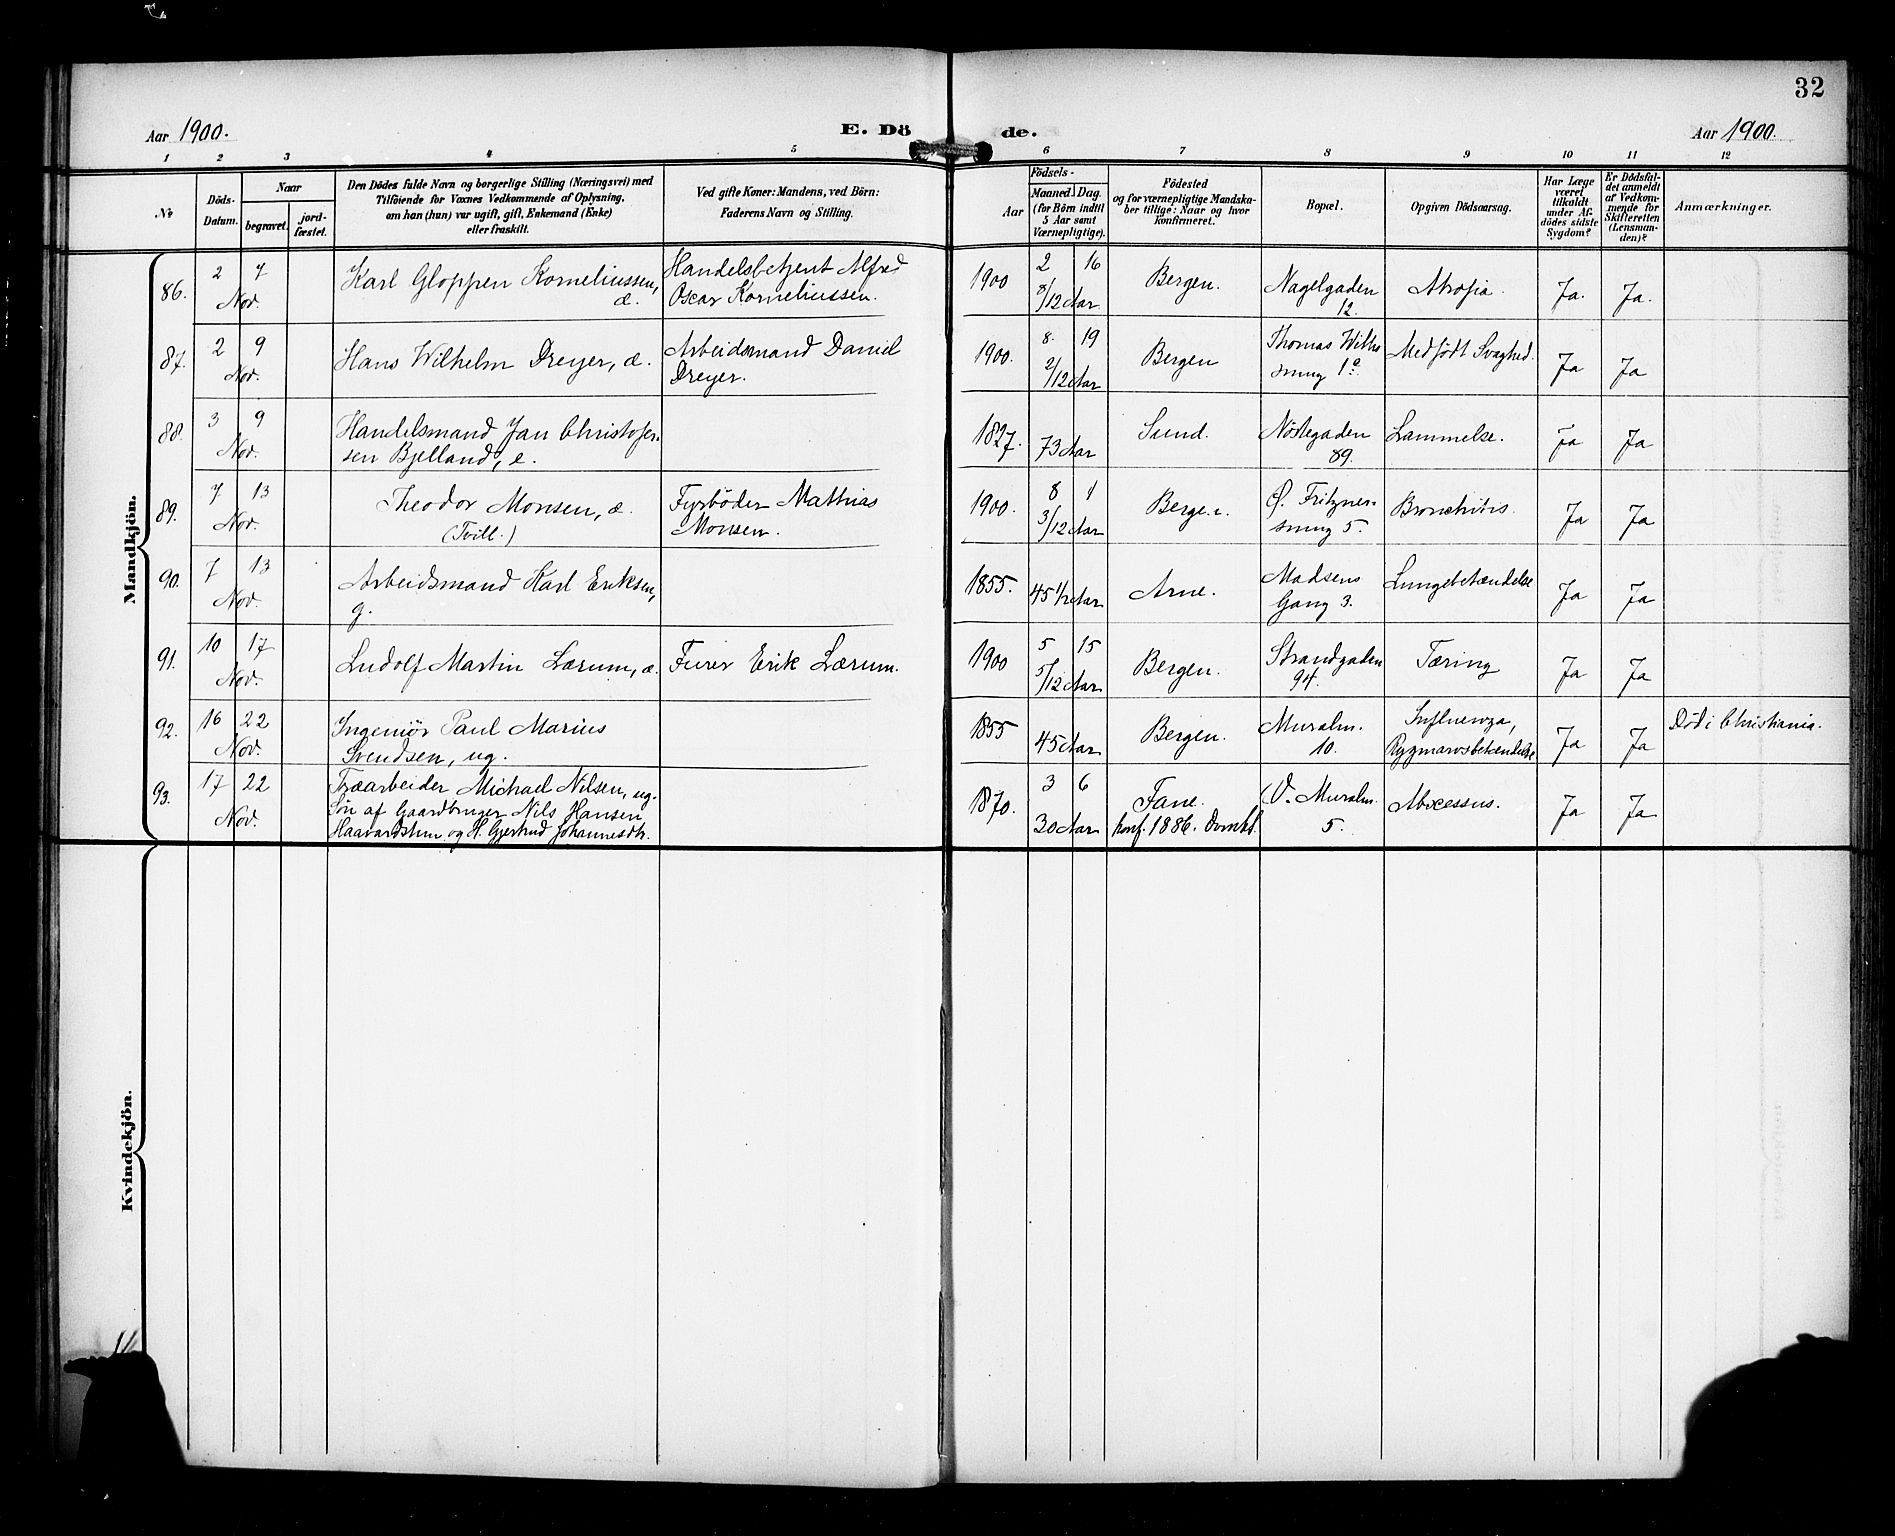 32
Aar 1900.
E. Dö
de.
Aar 1900.
1 2 3 4 5 6 7 8 9 10 11 12
No
Döds-
Datum.
Naar
begravet.
jord-
fæstet.
Den Dödes fulde Navn og borgerlige Stilling (Næringsvei) med
Tilföiende for Voxnes Vedkommende af Oplysning,
om han (hun) var ugift, gift, Enkemand (Enke)
eller fraskilt.
Ved gifte Koner: Mandens, ved Börn:
Faderens Navn og Stilling.
Födsels-
Aar
Maaned. Dag.
(for Börn indtil
5 Aar samt
Værnepligtige).
Födested
og for værnepligtige Mandska-
ber tillige: Naar og hvor
konfirmeret.
Bopæl.
Opgiven Dödsaarsag.
Har Læge
været
tilkaldt
under Af-
dödes sidste
Sygdom?
Er Dödsfal-
det anmeldt
af Vedkom-
mende for
Skifteretten
(Lensman-
den)?
Anmærkninger.
Mandkjön.
86.
2 7
Nov.
Karl Gloppen Korneliussen,
æ.
Handelsbetjent Alfred
Oscar Korneliussen.
1900
2 16
8/12 Aar
Bergen.
Nagelgaden
12.
Atrofia.
Ja.
Ja.
87.
2 9
Nov.
Hans Wilhelm Dreyer, æ.
Arbeidsmand Daniel
Dreyer.
1900.
8. 19
2/12 Aar
Bergen
Thomas Withs
smug 1a.
Medfödt Svaghed.
Ja
Ja
88.
3 9
Nov.
Handelsmand Jan Christofer-
sen Bjelland, e.
1827.
73 Aar
Sund.
Nöstegaden
89.
Lammelse.
Ja
Ja
89.
7 13
Nov.
Theodor Monsen, æ.
(Tvill.)
Fyrböder Mathias
Monsen.
1900.
8 1
3/12 Aar
Bergen.
Ø. Fritzner-
smug 5.
Bronchitis.
Ja
Ja
90.
7 13
Nov.
Arbeidsmand Karl Eriksen,
g.
1855.
45 1/2 Aar
Arne.
Madsens
Gang 3.
Lungebetændelse
Ja
Ja
91.
10 17
Nov.
Ludolf Martin Lærum, æ.
Furer Erik Lærum.
1900
5 15
5/12 Aar
Bergen.
Strandgaden
94.
Tæring
Ja
Ja
92.
16 22
Nov.
Ingeniør Paul Marius
Svendsen, ug.
1855
45 Aar
Bergen.
Muralm.
10.
Influenza,
Rygmarvsbetændelse
Ja
Ja
Död i Christiania.
93.
17 22
Nov.
Træarbeider Michael Nilsen, ug.
Sön af Gaardbruger Nils Hansen
Haavardstun og H. Gjertrud Johannesdtr.
1870.
3 6
30 Aar
Fane.
konf. 1886. Domk.
V. Muralm.
5.
Abscessus.
Ja
Ja
Kvindekjön.